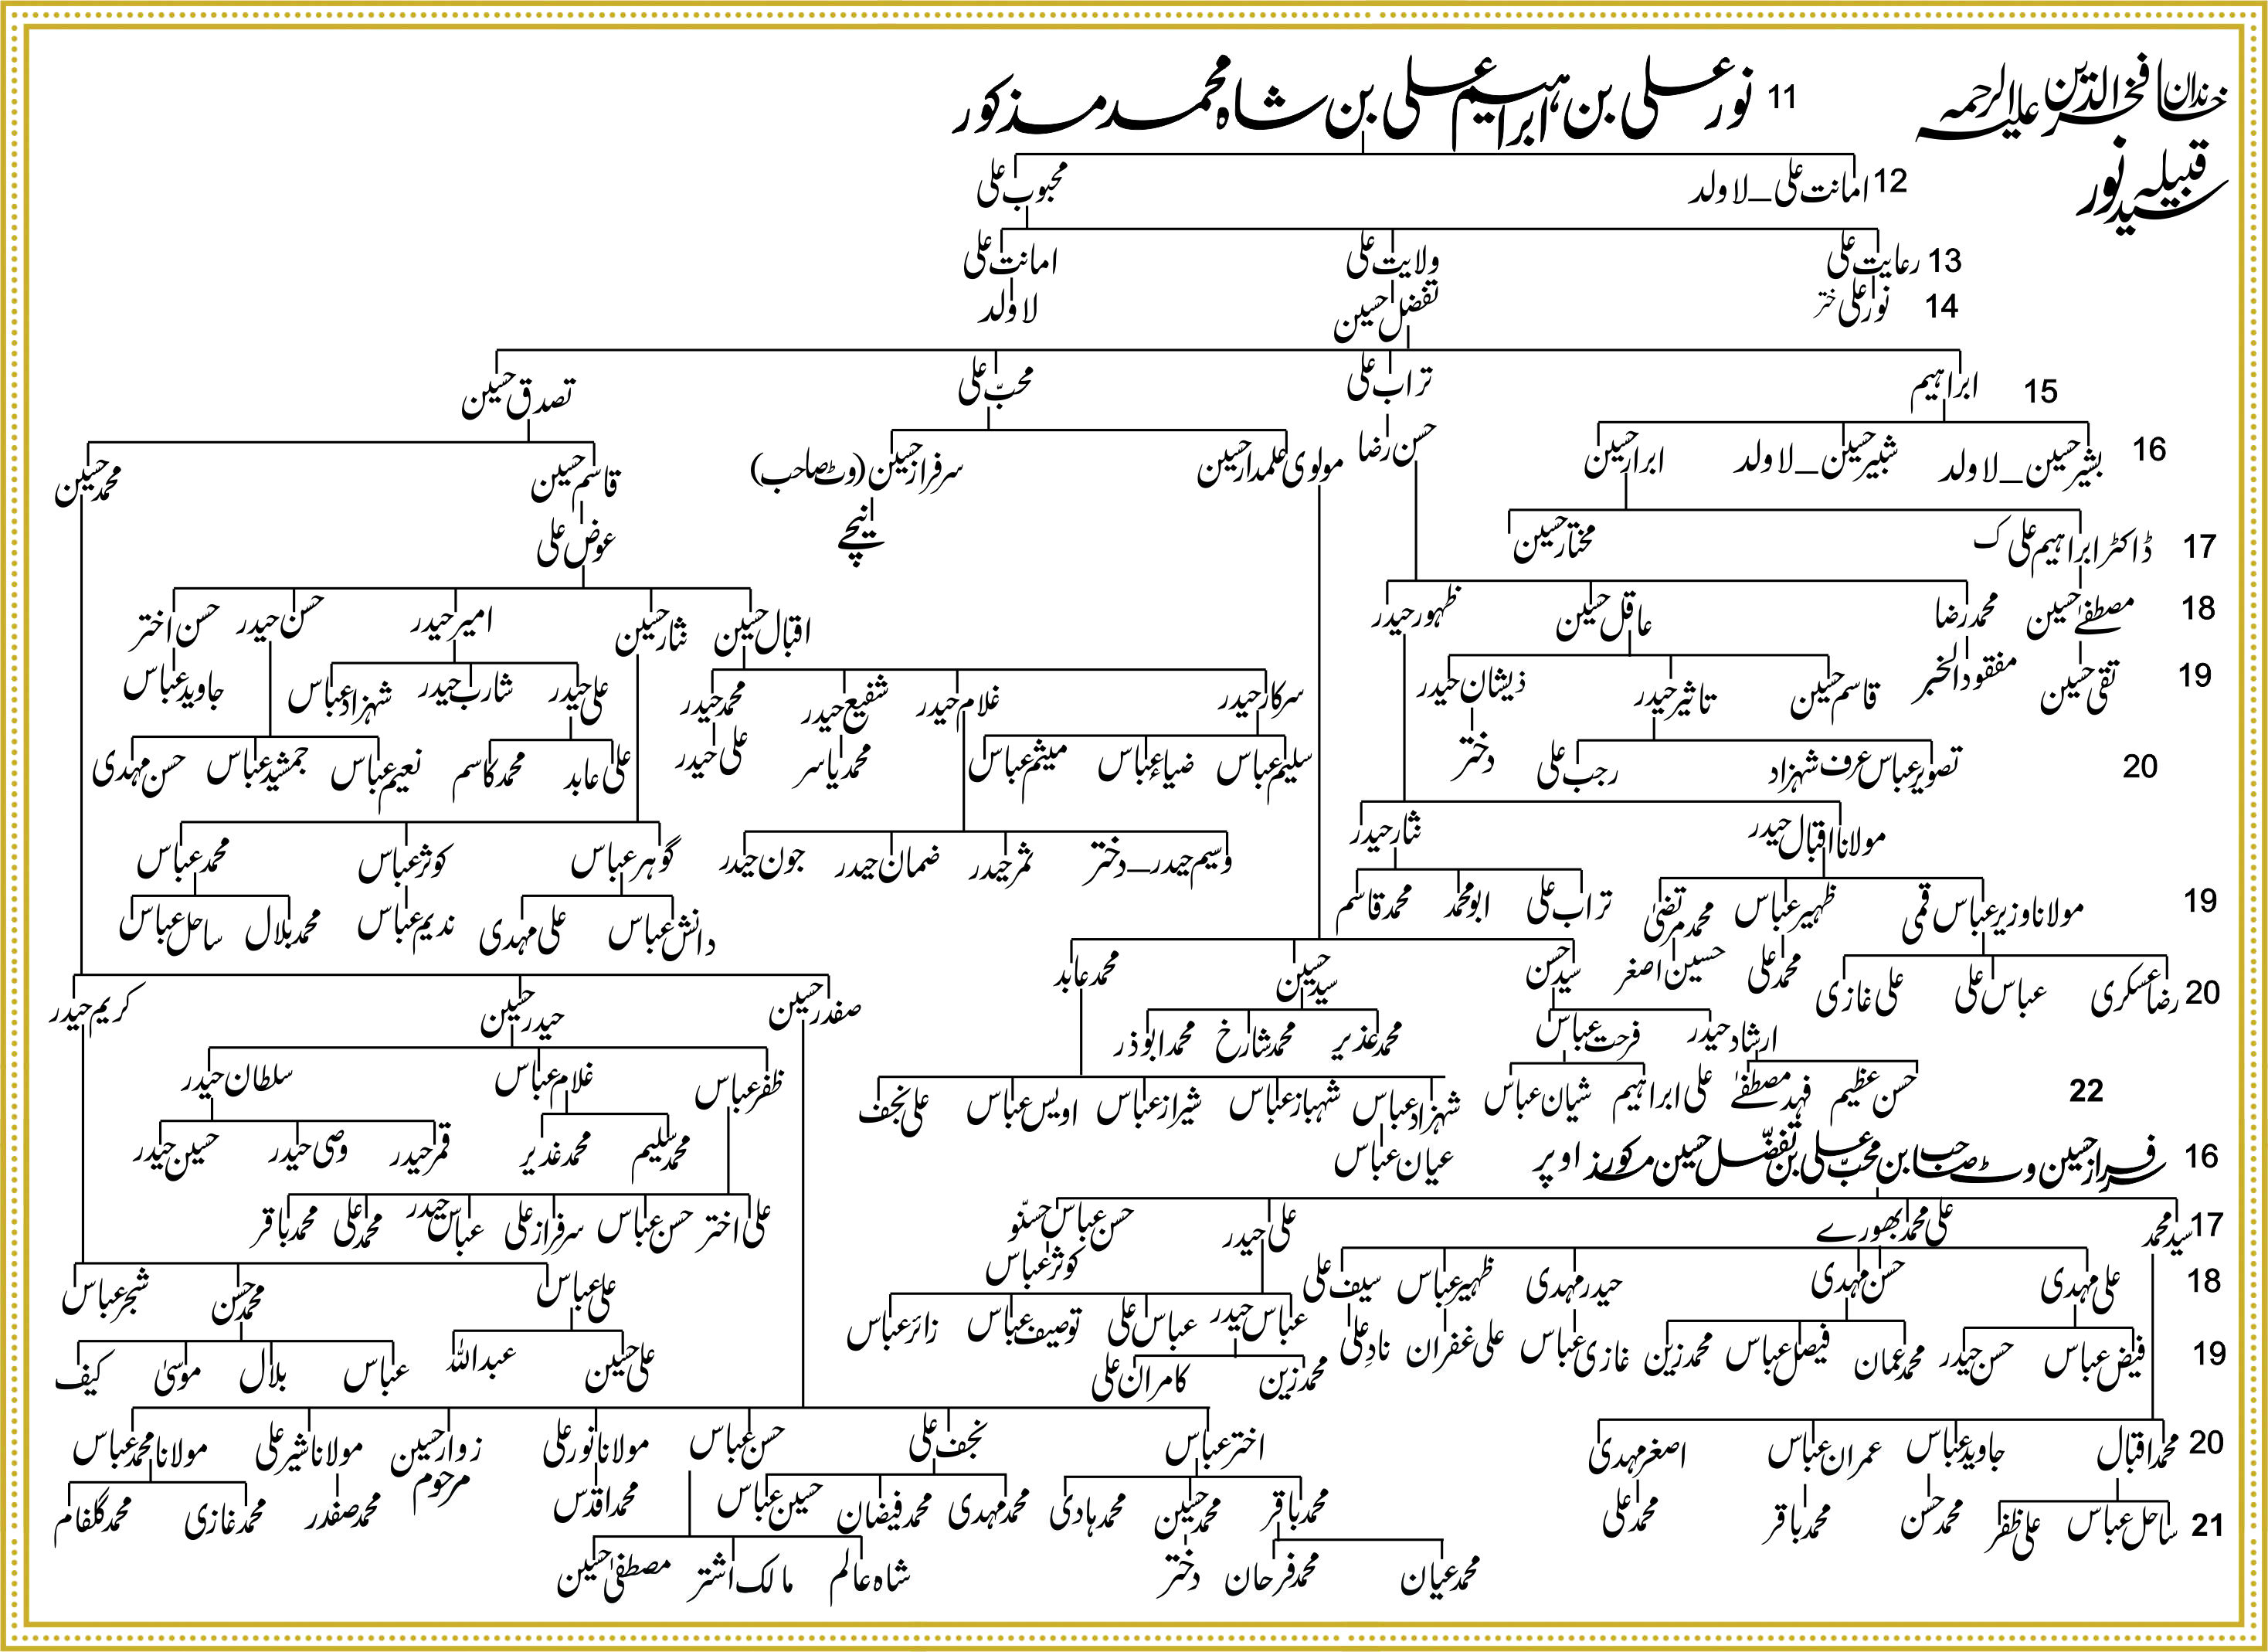 خاندان فخرالدین علیہ الرحمہ
قبیلہ سید نور
11 نور علی بن ابراہیم علی بن شاہ محمد مذکور
12 امانت علی _ لاولد محبوب علی
13 رعایت علی ولایت علی امانت علی
14 نور علی ختر تفضل حسین لاولد
15 ابراہیم تراب علی محبّ علی تصدق حسین
16 بشیر حسین _ لاولد شبیر حسین _ لاولد ابرار حسین حسن رضا مولوی علمدار حسین سرفراز حسین (وٹ صاحب) قاسم حسین محمد حسین
نیچے
17 ڈاکٹر ابراہیم علی ک مختار حسین عوض علی
18 مصطفےٰ حسین محمد رضا عاقل حسین ظہور حیدر اقبال حسین نثار حسین امیر حیدر حسن حیدر حسن اختر
19 تقی حسین مفقود الخبر قاسم حسین تاثیر حیدر ذیشان حیدر سرکار حیدر غلام حیدر شفیع حیدر محمد حیدر علی حیدر شارب حیدر شہزاد عباس جاوید عباس
20 تصویر عباس عرف شہزاد رجب علی دختر سلیم عباس ضیاء عباس میثم عباس محمد یاسر علی حیدر علی عابد محمد کاسم نعیم عباس جمشید عباس حسن مہدی
مولانا اقبال حیدر نثار حیدر وسیم حیدر _ دختر ثمر حیدر ضمان حیدر جون حیدر گوہر عباس کوثر عباس محمد عباس
19 مولانا وزیر عباس قمی ظہیر عباس محمد مرتضیٰ تراب علی ابو محمد محمد قاسم دانش عباس علی مہدی ندیم عباس محمد بلال ساحل عباس
20 رضا عسکری عباس علی علی غازی محمد علی حسین اصغر سید حسن سید حسین محمد عابد صفدر حسین حیدر حسین کریم حیدر
ارشاد حیدر فرحت عباس محمد غذیر محمد شارخ محمد ابوذر
22 حسن عظیم فہد مصطفےٰ علی ابراہیم شیان عباس شہزاد عباس شہباز عباس شیراز عباس اویس عباس علی نجف ظفر عباس غلام عباس سلطان حیدر
عیان عباس محمد سلیم محمد غدیر قمر حیدر وصی حیدر حسین حیدر
16 سرفراز حسین وٹ صاحب بن محبّ علی بن تفضّل حسین مذکور اوپر
علی اختر حسن عباس سرفراز علی عباس حیدر محمد علی محمد باقر
17 سید محمد علی محمد بھورے علی حیدر حسن عباس حسنّو
کوثر عباس
18 علی مہدی حسن مہدی حیدر مہدی ظہیر عباس سیف علی عباس حیدر عباس علی توصیف عباس زائر عباس علی عباس محمد حسن شجر عباس
19 فیض عباس حسن حیدر محمد عمان فیصل عباس محمد زین غازی عباس علی غفران نادِ علی محمد زین کامران علی علی حسین عبداللہ عباس بلال موسیٰ کیف
20 محمد اقبال جاوید عباس عمران عباس اصغر مہدی اختر عباس نجف علی حسن عباس مولانا نور علی زوار حسین مرحوم مولانا شیر علی مولانا محمد عباس
21 ساحل عباس علی ظفر محمد حسن محمد باقر محمد علی محمد باقر محمد حسین محمد ہادی محمد مہدی محمد فیضان حسین عباس محمد اقدس محمد صفدر محمد غازی محمد گلفام
محمد عیان محمد فرحان دختر شاہ عالم مالک اشتر مصطفیٰ حسین